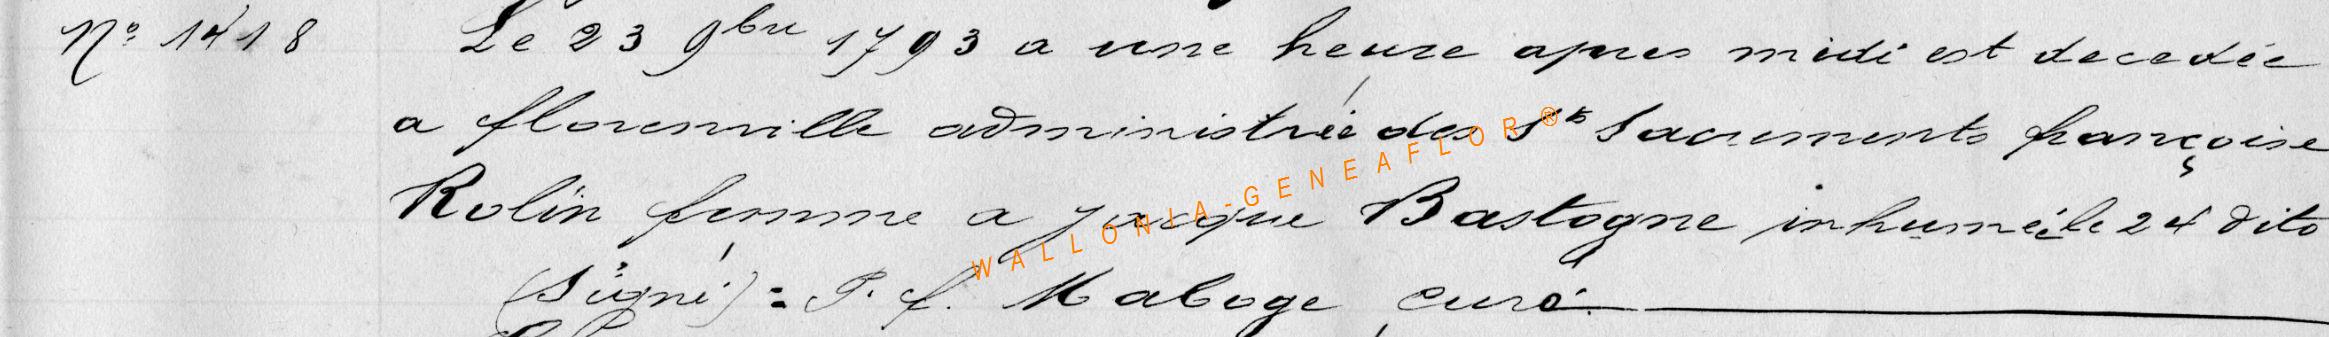 Nº 1418 Le 23 9bre 1793 a une heure apres midi est decedée
a florenville administrée des Sts Sacrements françoise
Rolin femme a jacque Bastogne inhumée le 24 dito
(Signé) = P. f. Maboge curé.
WALLONIA-GENEAFLOR®